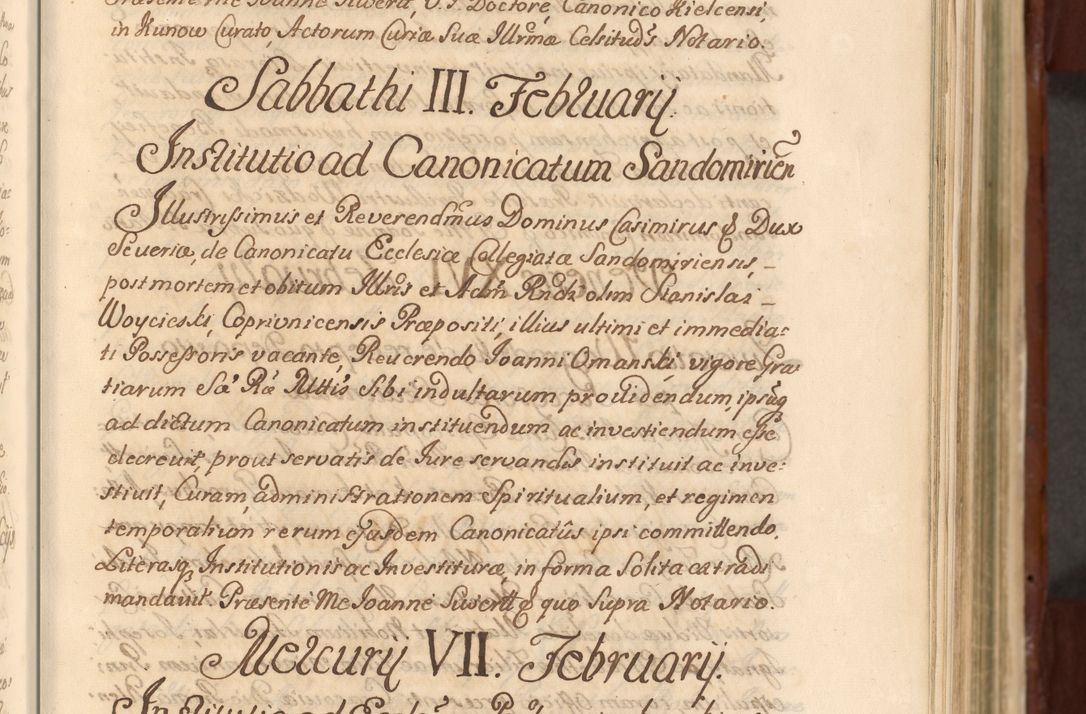 Præsente me Joanne Siwerd, U. J. Doctore, Canonico Kielcensi,
in Kunow Curato, Actorum Curiæ Suæ Illrmæ Celsituds Notario.
Sabbathi III. Februarij.
Institutio ad Canonicatum Sandomiricn
Illustrissimus et Reverendmus Dominus Casimirus & Dux
Severiæ, de Canonicatu Ecclesiæ Collegiatæ Sandomiriensis,
post mortem et obitum Illris et Adm Rndi olim Stanislai
Woycieski, Coprivnicensis Præpositi, illius ultimi et immedia:
ti Possessoris vacante, Reverendo Joanni Omanski, vigore Gra
tiarum Sæ Ræ Mttis Sibi indultarum providendum, ipsumq
ad dictum Canonicatum instituendum ac investiendum esse
decrevit, prout servatis de Jure servandis instituit ac inve:
stivit, Curam, administrationem Spiritualium, et regimen
temporalium rerum ejusdem Canonicatûs ipsi committendo.
Literasq Institutionis ac Investituræ, in forma Solita extradi
mandavit. Præsente Me Joanne Siwerd & quo supra Notario.
Mercurij VII. Februarij.
Institutio ad